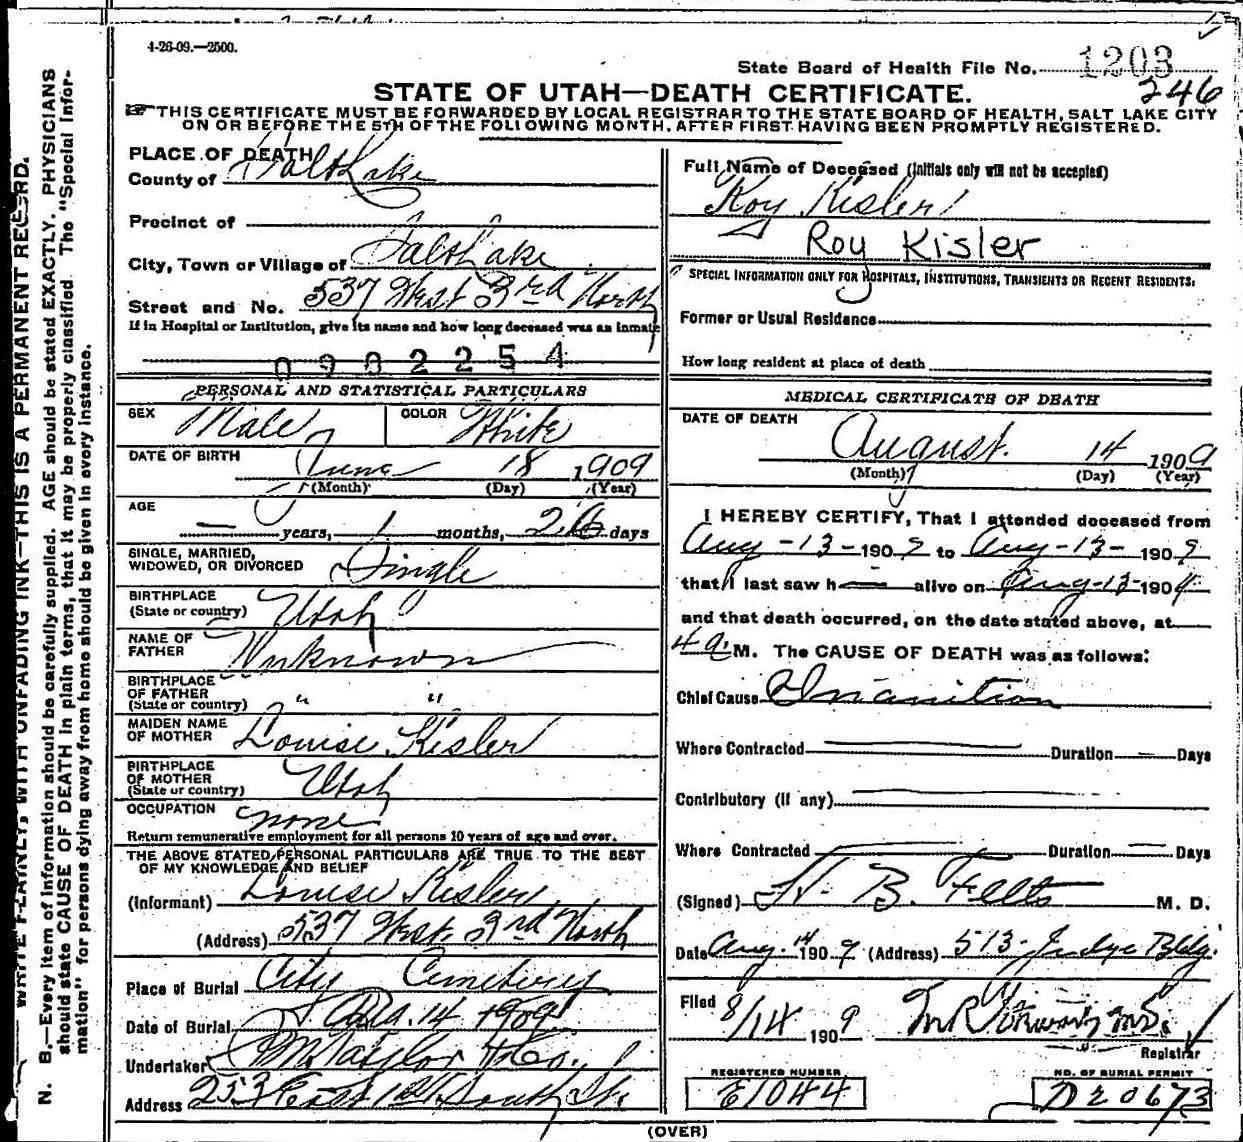 4-26-09.—2500.
State Board of Health File No. 1203
246
STATE OF UTAH—DEATH CERTIFICATE.
THIS CERTIFICATE MUST BE FORWARDED BY LOCAL REGISTRAR TO THE STATE BOARD OF HEALTH, SALT LAKE CITY
ON OR BEFORE THE 5TH OF THE FOLLOWING MONTH, AFTER FIRST HAVING BEEN PROMPTLY REGISTERED.
PLACE OF DEATH
County of Salt Lake
Precinct of
City, Town or Village of Salt Lake
Street and No. 537 West 3rd North
If in Hospital or Institution, give its name and how long deceased was an inmate
0902254
PERSONAL AND STATISTICAL PARTICULARS
SEX Male COLOR White
DATE OF BIRTH June 18 1909
(Month) (Day) (Year)
AGE — years, 1 months, 26 days
SINGLE, MARRIED,
WIDOWED, OR DIVORCED Single
BIRTHPLACE
(State or country) Utah
NAME OF
FATHER Unknown
BIRTHPLACE
OF FATHER
(State or country) " "
MAIDEN NAME
OF MOTHER Louise Kisler
BIRTHPLACE
OF MOTHER
(State or country) Utah
OCCUPATION none
Return remunerative employment for all persons 10 years of age and over.
THE ABOVE STATED PERSONAL PARTICULARS ARE TRUE TO THE BEST
OF MY KNOWLEDGE AND BELIEF
(Informant) Louise Kisler
(Address) 537 West 3rd North
Place of Burial City Cemetery
Date of Burial 14 1909
Undertaker Taylor & Co.
Address 253 East 1st South St.
Full Name of Deceased (Initials only will not be accepted)
Roy Kisler
Roy Kisler
SPECIAL INFORMATION ONLY FOR HOSPITALS, INSTITUTIONS, TRANSIENTS OR RECENT RESIDENTS:
Former or Usual Residence
How long resident at place of death
MEDICAL CERTIFICATE OF DEATH
DATE OF DEATH
August 14 1909
(Month) (Day) (Year)
I HEREBY CERTIFY, That I attended deceased from
Aug-13-1909 to Aug-13-1909
that I last saw h— alive on Aug-13-190
and that death occurred, on the date stated above, at
4 a. M. The CAUSE OF DEATH was as follows:
Chief Cause Inanition
Where Contracted — Duration — Days
Contributory (if any) —
Where Contracted — Duration — Days
(Signed) H. B. Felts M. D.
Date Aug. 14 1909 (Address) 513 Judge Bldg.
Filed 8/14 1909
Registrar
REGISTERED NUMBER
E1044
NO. OF BURIAL PERMIT
D20673
(OVER)
WRITE PLAINLY, WITH UNFADING INK—THIS IS A PERMANENT RECORD.
N. B.—Every item of information should be carefully supplied. AGE should be stated EXACTLY. PHYSICIANS
should state CAUSE OF DEATH in plain terms, that it may be properly classified. The "Special Infor-
mation" for persons dying away from home should be given in every instance.